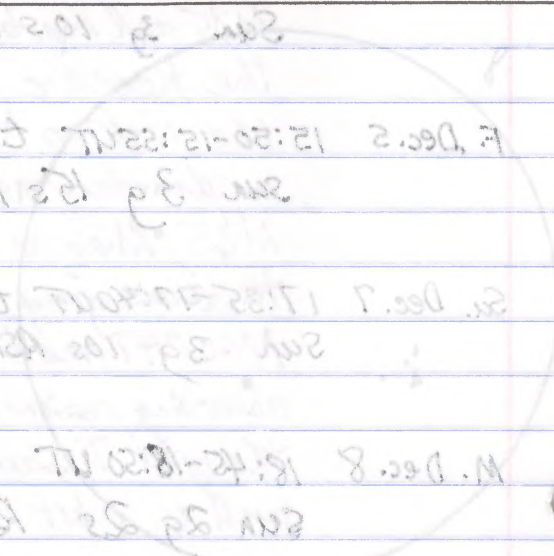 Sun 3g 10s
F. Dec. 5 15:50-15:55UT t
Sun 3g 15s
Su. Dec. 7 17:35-17:40UT t
Sun 3g 10s
M. Dec. 8 18:45-18:50 UT
Sun 2g 2s